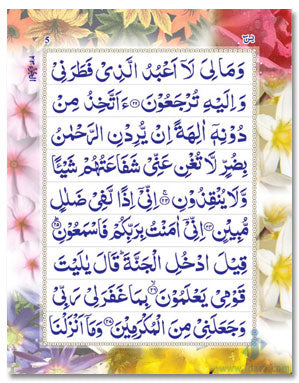 5
يٰسٓ
وَمَالِيَ لَآ اَعْبُدُ الَّذِيْ فَطَرَنِيْ
وَاِلَيْهِ تُرْجَعُوْنَ ۝۲۲ ءَاَتَّخِذُ مِنْ
دُوْنِهٖٓ اٰلِهَةً اِنْ يُّرِدْنِ الرَّحْمٰنُ
بِضُرٍّ لَّا تُغْنِ عَنِّيْ شَفَاعَتُهُمْ شَيْـًٔا
وَّلَا يُنْقِذُوْنِ ۝۲۳ اِنِّيْٓ اِذًا لَّفِيْ ضَلٰلٍ
مُّبِيْنٍ ۝۲۴ اِنِّيْٓ اٰمَنْتُ بِرَبِّكُمْ فَاسْمَعُوْنِ ۝۲۵
قِيْلَ ادْخُلِ الْجَنَّةَ قَالَ يٰلَيْتَ
قَوْمِيْ يَعْلَمُوْنَ ۝۲۶ بِمَا غَفَرَلِيْ رَبِّيْ
وَجَعَلَنِيْ مِنَ الْمُكْرَمِيْنَ ۝۲۷ وَمَآ اَنْزَلْنَا